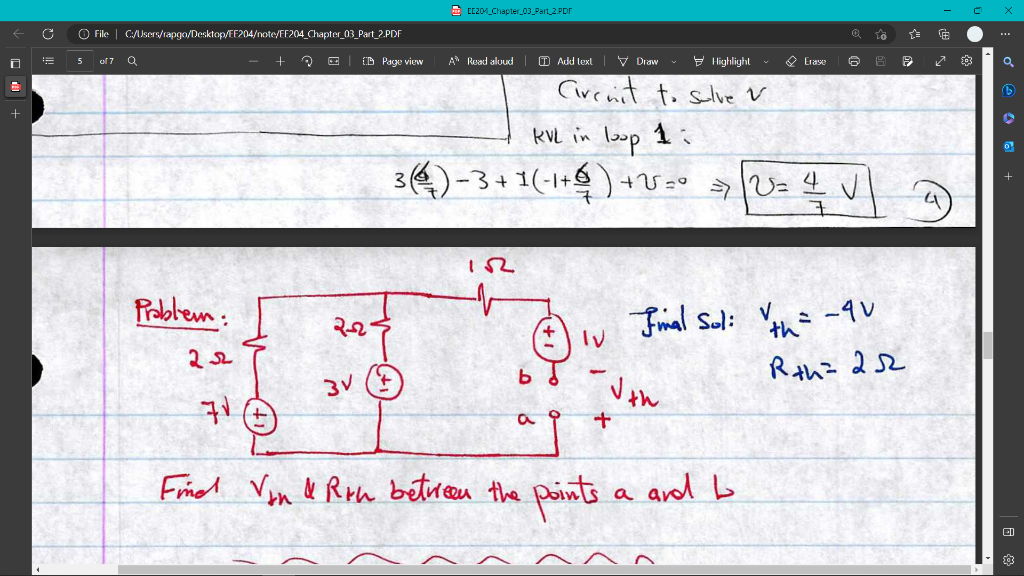 EE204_Chapter_03_Part_2.PDF
File | C:/Users/rapgo/Desktop/EE204/note/EE204_Chapter_03_Part_2.PDF
5 of 7 Page view Read aloud Add text Draw Highlight Erase
Circuit to solve v
KVL in loop 1 :
3(6/7) - 3 + 1(-1 + 6/7) + v = 0 ⇒ v = 4/7 V 4
Problem:
1Ω
2Ω
2Ω
3V
7V
1V
b
a
-
Vth
+
Final Sol: Vth = -4V
Rth = 2Ω
Find Vth & Rth between the points a and b